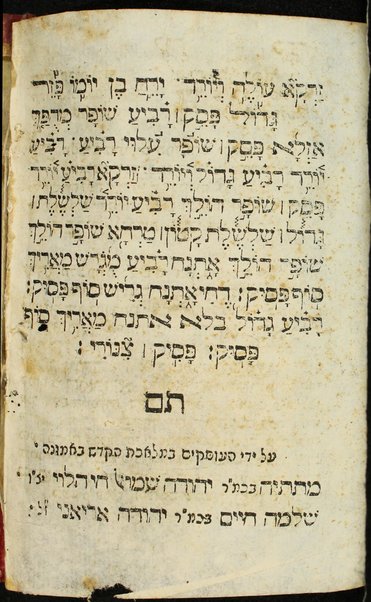 זַרְקָא עוֹלֶה וְיוֹרֵד יָרֵחַ בֶּן יוֹמוֹ פָּזֵר
גָדוֹל פָּסֵק ׀ רָבִיעַ שׁוֹפָר מְהֻפָּךְ
אַזְלָא פָּסֵק ׀ שׁוֹפָר עִלּוּי רָבִיעַ רָבִיעַ
יוֹרֵד רָבִיעַ גָדוֹל וְיוֹרֵד זַרְקָא רָבִיעַ יוֹרֵד
פָּסֵק ׀ שׁוֹפָר הוֹלֵךְ רָבִיעַ יוֹרֵד שַׁלְשֶׁלֶת
גָדוֹל ׀ שַׁלְשֶׁלֶת קָטוֹן ׀ מַרְחָא שׁוֹפָר הוֹלֵךְ
שׁוֹפָר הוֹלֵךְ אֶתְנָח רָבִיעַ מְגֹרָשׁ מַאֲרִיךְ
סוֹף פָּסִיק: דְחִי אֶתְנָח גֵרִישׁ סוֹף פָּסִיק:
רָבִיעַ גָדוֹל בלא אתנח מַאֲרִיךְ סוֹף
פָּסִיק: פָּסִיק ׀ צִנּוֹרִי :
תם
על ידי העוסקים במלאכת הקדש באמונה
מתתיה בכמ״ר יהודה שמואל הי הלוי יצ״ו
שלמה חיים בכמ״ר יהודה אריאני